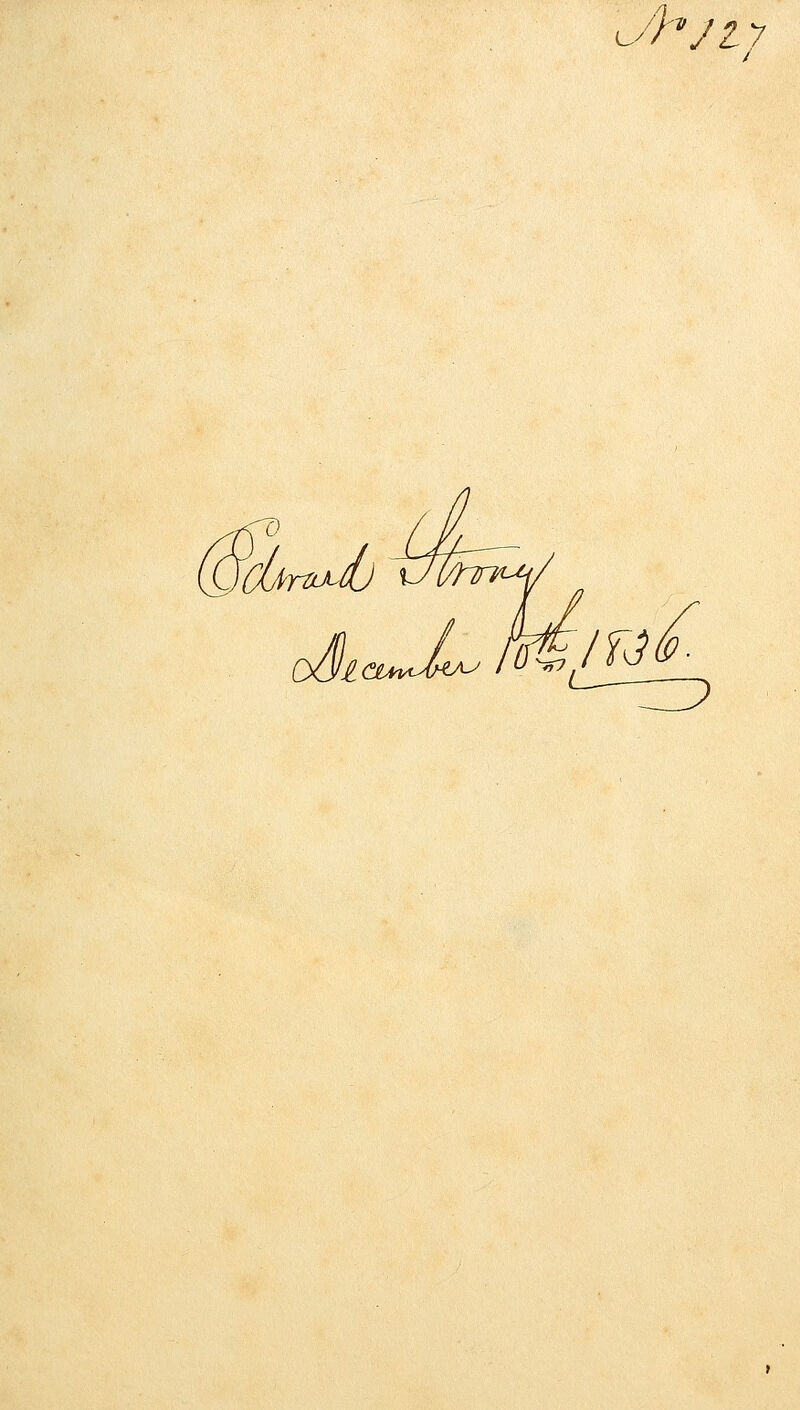 No 127
Edward Strong
December 10th, 1836.